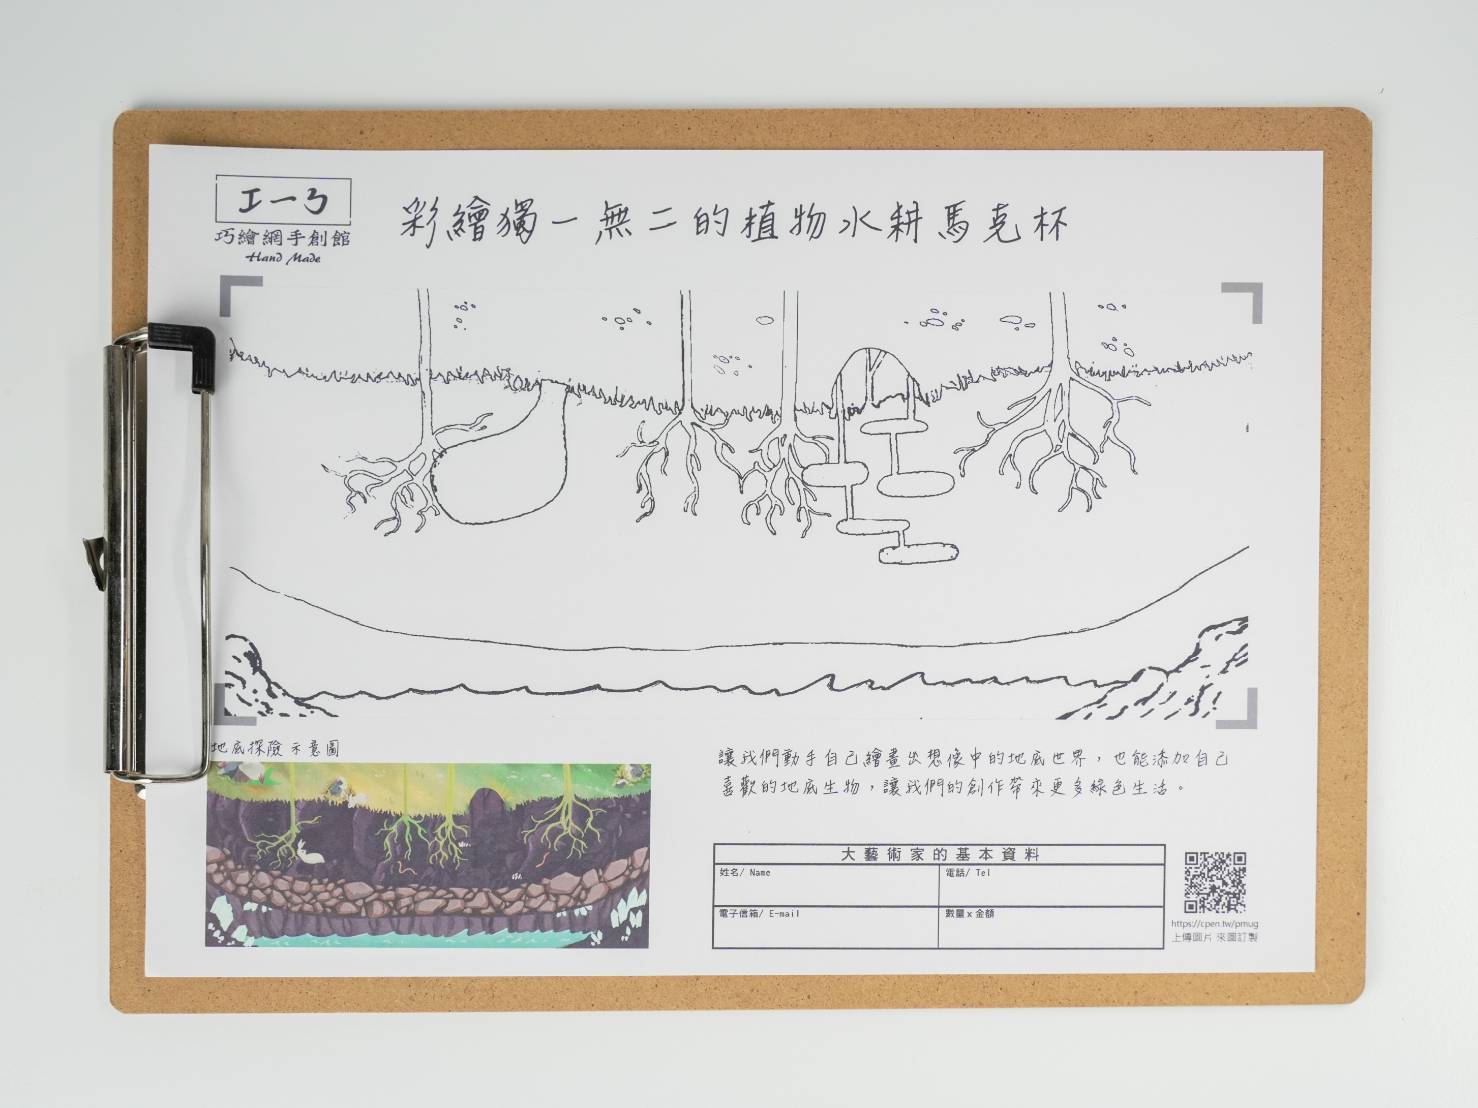 工一ㄋ
巧繪網手創館
Hand Made
彩繪獨一無二的植物水耕馬克杯
地底探險示意圖
讓我們動手自己繪畫出想像中的地底世界，也能添加自己
喜歡的地底生物，讓我們的創作帶來更多綠色生活。
大藝術家的基本資料
姓名/ Name
電話/ Tel
電子信箱/ E-mail
數量x金額
https://cpen.tw/pmug
上傳圖片 來圖訂製